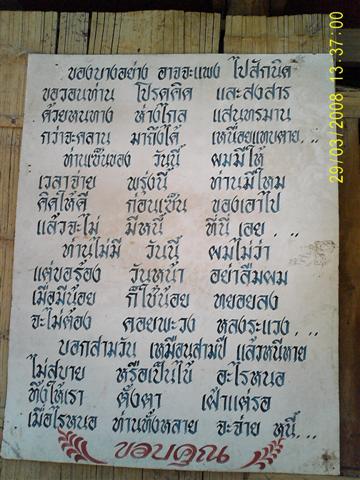 ของบางอย่าง อาจจะแพง ไปสักนิด
ขอวอนท่าน โปรดคิด และสงสาร
ด้วยหนทาง ห่างไกล แสนทรมาน
กว่าจะคลาน มาถึงได้ เหนื่อยแทบตาย...
ท่านเซ็นของ วันนี้ ผมมีให้
เวลาจ่าย พรุ่งนี้ ท่านมีไหม
คิดให้ดี ก่อนเซ็น ของเอาไป
แล้วจะไม่ มีหนี้ ที่นี่ เอย...
ท่านไม่มี วันนี้ ผมไม่ว่า
แต่ขอร้อง วันหน้า อย่าลืมผม
เมื่อมีน้อย ก็ใช้น้อย ทยอยลง
จะไม่ต้อง คอยพะวง หลงระแวง...
บอกสามวัน เหมือนสามปี แล้วหนีหาย
ไม่สบาย หรือเป็นไข้ อะไรหนอ
ทิ้งให้เรา ตั้งตา เฝ้าแต่รอ
เมื่อไรหนอ ท่านทั้งหลาย จะจ่าย หนี้...
ขอบคุณ
29/03/2008 13:37:00